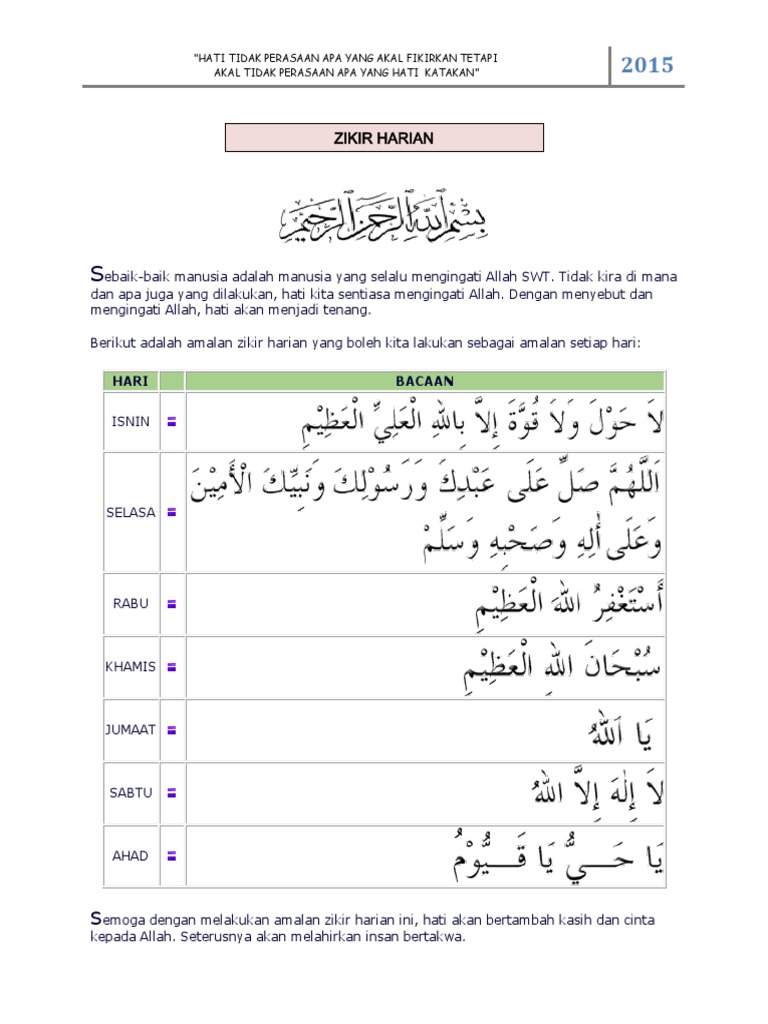 "HATI TIDAK PERASAAN APA YANG AKAL FIKIRKAN TETAPI
AKAL TIDAK PERASAAN APA YANG HATI KATAKAN"
2015
ZIKIR HARIAN
بِسْمِ اللَّهِ الرَّحْمَنِ الرَّحِيمِ
Sebaik-baik manusia adalah manusia yang selalu mengingati Allah SWT. Tidak kira di mana
dan apa juga yang dilakukan, hati kita sentiasa mengingati Allah. Dengan menyebut dan
mengingati Allah, hati akan menjadi tenang.
Berikut adalah amalan zikir harian yang boleh kita lakukan sebagai amalan setiap hari:
HARI BACAAN
ISNIN = لاَ حَوْلَ وَلاَ قُوَّةَ إِلاَّ بِاللهِ الْعَلِيِّ الْعَظِيْمِ
SELASA = اَللَّهُمَّ صَلِّ عَلَى عَبْدِكَ وَرَسُوْلِكَ وَنَبِيِّكَ الْأَمِيْنَ
وَعَلَى أٰلِهِ وَصَحْبِهِ وَسَلِّمْ
RABU = أَسْتَغْفِرُ اللهَ الْعَظِيْمِ
KHAMIS = سُبْحَانَ اللهِ الْعَظِيْمِ
JUMAAT = يَا اَللهُ
SABTU = لاَ إِلٰهَ إِلاَّ اللهُ
AHAD = يَا حَــيُّ يَا قَــيُّوْمُ
Semoga dengan melakukan amalan zikir harian ini, hati akan bertambah kasih dan cinta
kepada Allah. Seterusnya akan melahirkan insan bertakwa.